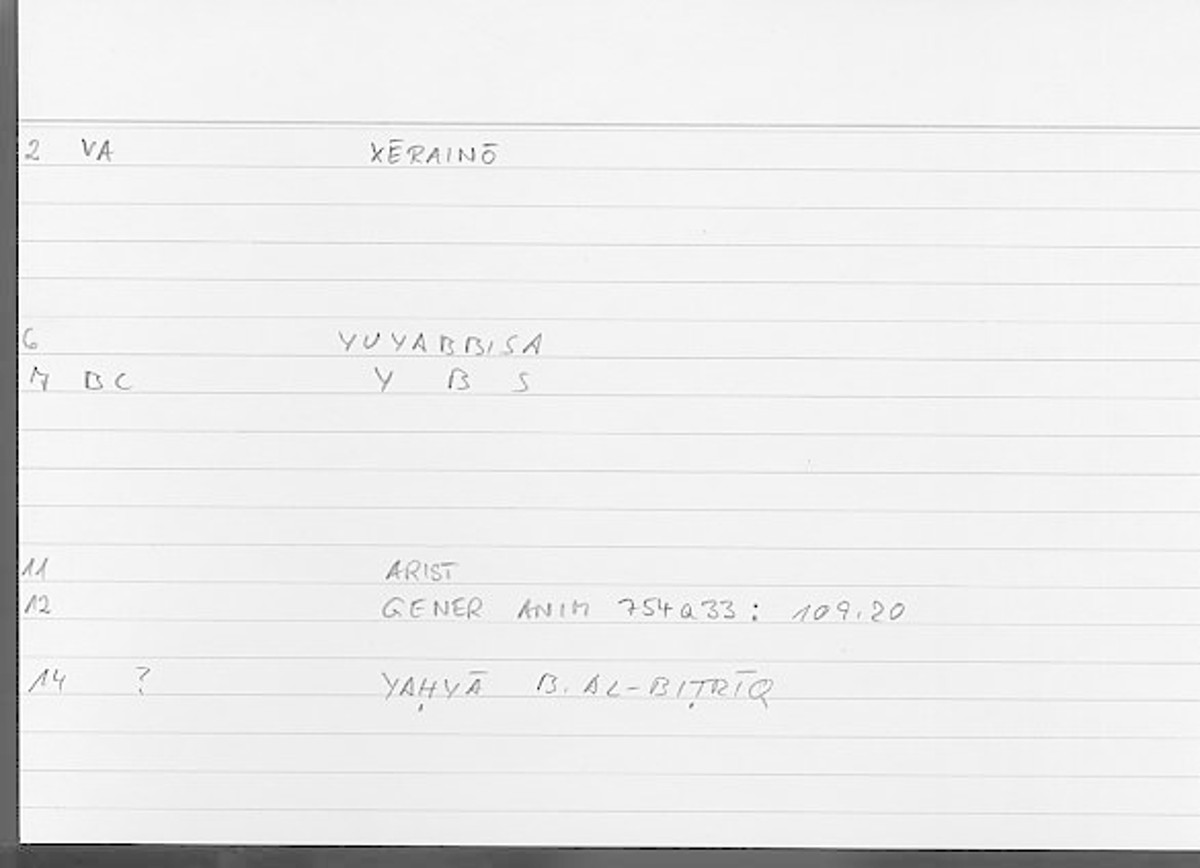 2 VA XĒRAINŌ
6 YUYABBISA
7 BC Y B S
11 ARIST
12 GENER ANIM 754a33 : 109.20
14 ? YAḤYĀ B. AL-BIṬRĪQ